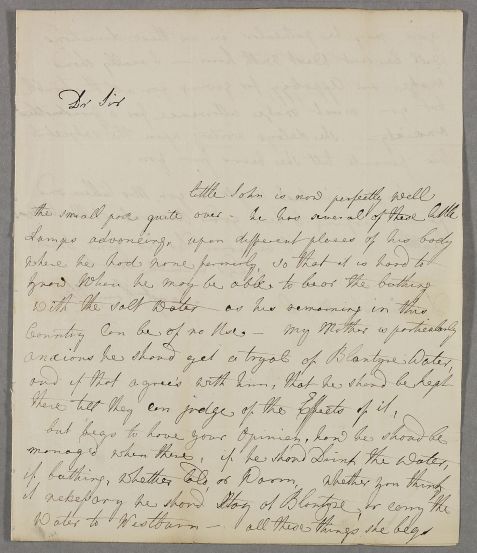 Dr Sir
little John is now perfectly well
the small pox quite over - he has several of these little
Lumps advancing, upon different places of his body
where he had none formerly, so that it is hard to
know when he may be able to bear the bathing
with the salt water - as his remaining in this
Country can be of no Use. - my Mother is particularly
anxious he should get a tryal of Blantyre Water,
and if that agrees with him, that he should be kept
there till they can judge of the Effects of it,
but begs to have your Opinion, how he should be
managed when there, if he should Drink the Water,
if bathing, whether Cold or Warm, whether you think
it necessary he should Stay at Blantyre, or carry the
Water to Westburn - all these things she begs